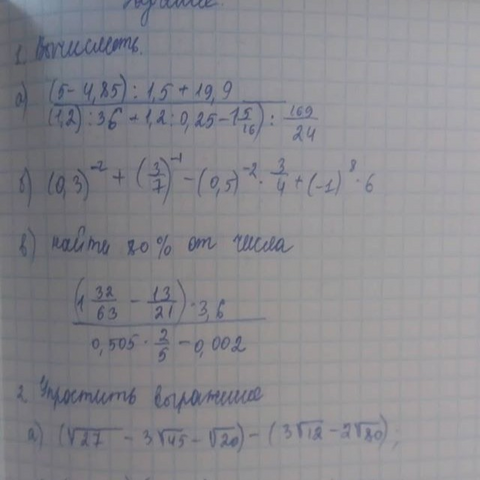 Задание.
1. Вычислить.
а) (5 - 4,85) : 1,5 + 19,9
(1,2) : 36 + 1,2 : 0,25 - 1 5/16) : 169/24
б) (0,3)^-2 + (3/7)^-1 - (0,5)^-2 · 3/4 + (-1)^8 · 6
в) найти 80% от числа
(1 32/63 - 13/21) · 3,6
0,505 · 2/5 - 0,002
2 Упростить выражение
а) (√27 - 3√45 - √20) - (3√12 - 2√80);